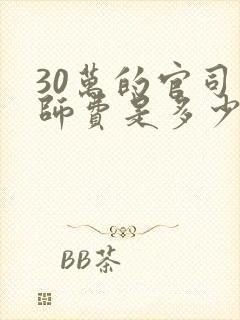 30萬的官司
師費是多少
BB茶